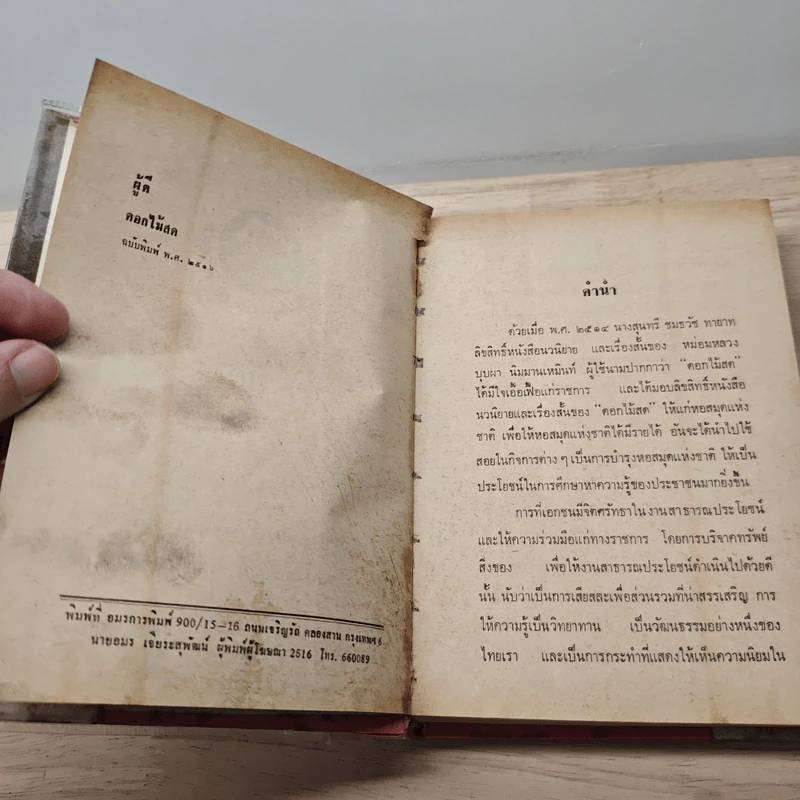 ผู้ดี
ดอกไม้สด
ฉบับพิมพ์ พ.ศ. ๒๕๑๖
พิมพ์ที่ อมรการพิมพ์ 900/15-16 ถนนเจริญรัถ คลองสาน กรุงเทพฯ 6
นายอมร เจียระสุพัฒน์ ผู้พิมพ์ผู้โฆษณา 2516 โทร. 660089
คำนำ
ด้วยเมื่อ พ.ศ. ๒๕๑๔ นางสุนทรี ชมธวัช ทายาท
ลิขสิทธิ์หนังสือนวนิยาย และเรื่องสั้นของ หม่อมหลวง
บุบผา นิมมานเหมินท์ ผู้ใช้นามปากกาว่า "ดอกไม้สด"
ได้มีใจเอื้อเฟื้อแก่ราชการ และได้มอบลิขสิทธิ์หนังสือ
นวนิยายและเรื่องสั้นของ "ดอกไม้สด" ให้แก่หอสมุดแห่ง
ชาติ เพื่อให้หอสมุดแห่งชาติได้มีรายได้ อันจะได้นำไปใช้
สอยในกิจการต่าง ๆ เป็นการบำรุงหอสมุดแห่งชาติ ให้เป็น
ประโยชน์ในการศึกษาหาความรู้ของประชาชนมากยิ่งขึ้น
การที่เอกชนมีจิตศรัทธาในงานสาธารณประโยชน์
และให้ความร่วมมือแก่ทางราชการ โดยการบริจาคทรัพย์
สิ่งของ เพื่อให้งานสาธารณประโยชน์ดำเนินไปด้วยดี
นั้น นับว่าเป็นการเสียสละเพื่อส่วนรวมที่น่าสรรเสริญ การ
ให้ความรู้เป็นวิทยาทาน เป็นวัฒนธรรมอย่างหนึ่งของ
ไทยเรา และเป็นการกระทำที่แสดงให้เห็นความนิยมใน